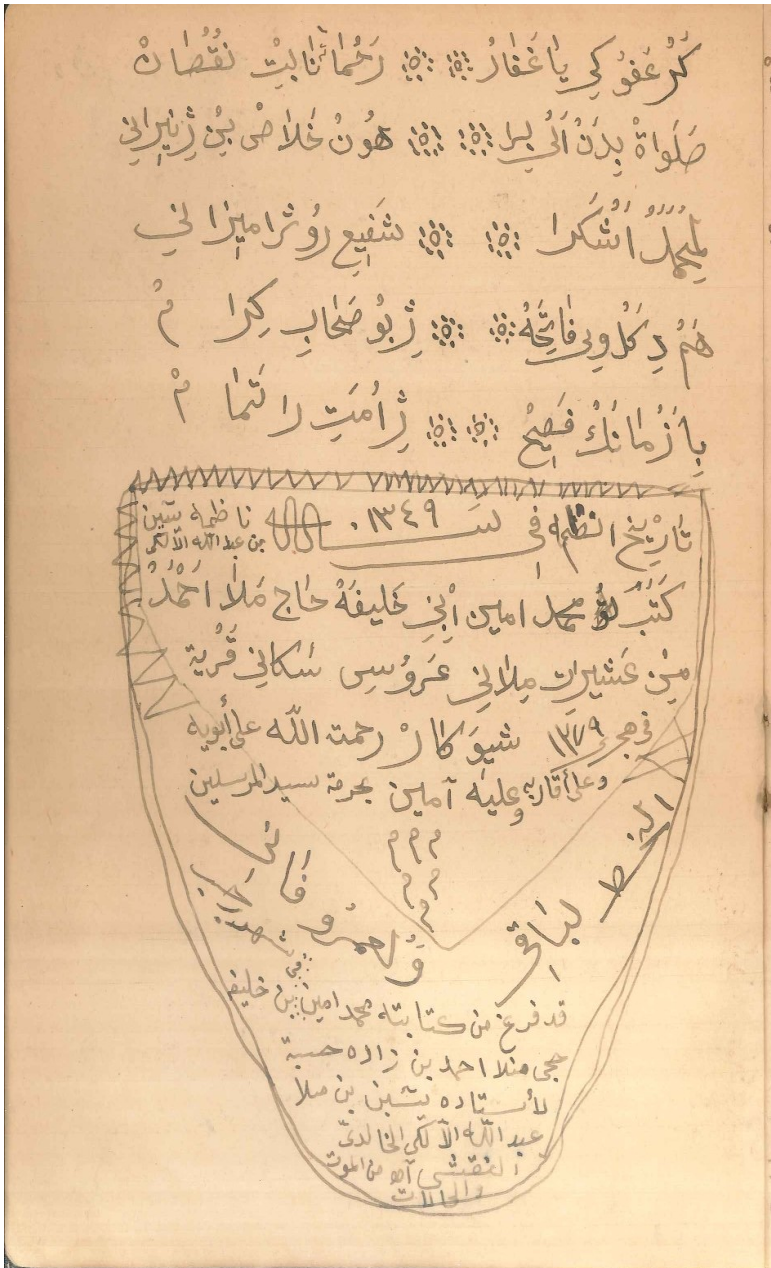 كر عفو كي يا غفار ؞ ؞ رحماتا ثابت نقصان
صلواة بدن الي برا ؞ ؞ هون خلاص بن ژ نيراني
شفيع رؤژا ميزاني
هم د كل وي فاتحه ؞ ؞ ژ بو صحاب كرا م
با زمانك فصيح ؞ ؞ ژ امت را تما م
تاريخ انظمه في سنة ١٣٤٩
ناظمه يسين
بن عبد الله الألكي
كتب محمد امين ابن خليفة حاج ملا احمد
من عشيرت ملاني عروس سكاني قرية
شيو كار رحمت الله على أبويه
في هجرة ١٣٧٩
وعلى أقاربه وعليه آمين بحرمة سيد المرسلين
م م م
م م
م
الخط لباقي
ولعمرو فاني
في شهر رجب
قد فرغ من كتابته محمد امين بن خليفه
حجى منلا احمد بن زاده حسبة
لأستاده يشين بن ملا
عبد الله الألكى الخالدي
النقشى آه من الموت